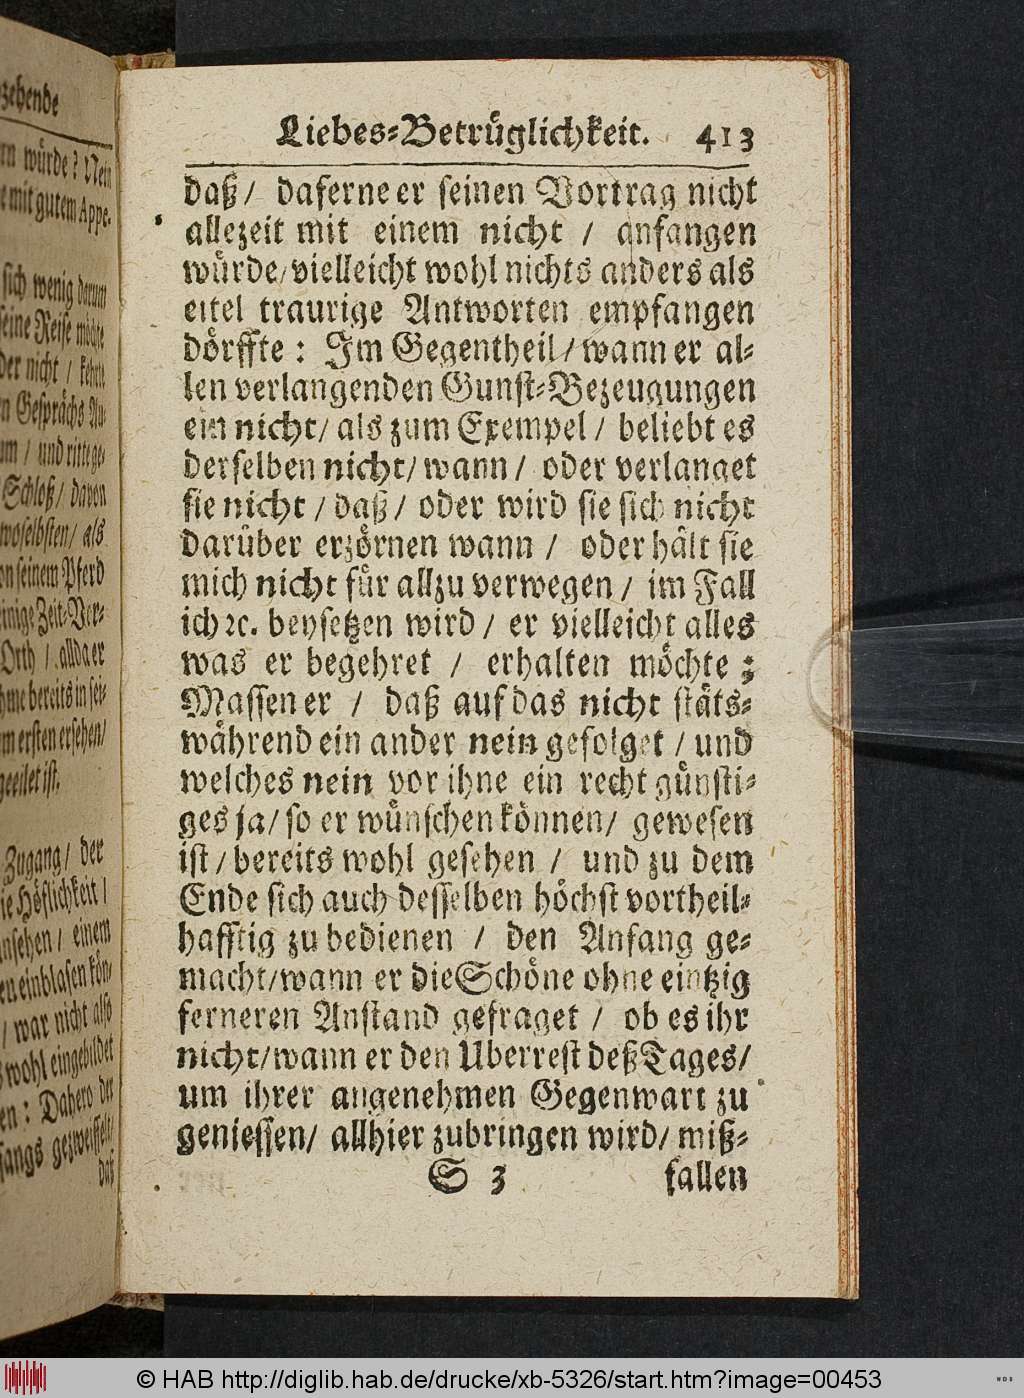 Liebes-Betrüglichkeit. 413
daß/ daferne er seinen Vortrag nicht
allezeit mit einem nicht / anfangen
würde/ vielleicht wohl nichts anders als
eitel traurige Antworten empfangen
dörffte : Im Gegentheil/ wann er al-
len verlangenden Gunst-Bezeugungen
ein nicht/ als zum Exempel / beliebt es
derselben nicht/ wann / oder verlanget
sie nicht / daß / oder wird sie sich nicht
darüber erzörnen wann / oder hält sie
mich nicht für allzu verwegen / im Fall
ich ꝛc. beysetzen wird / er vielleicht alles
was er begehret / erhalten möchte ;
Massen er / daß auf das nicht stäts-
während ein ander nein gefolget / und
welches nein vor ihne ein recht günsti-
ges ja/ so er wünschen können/ gewesen
ist / bereits wohl gesehen / und zu dem
Ende sich auch desselben höchst vortheil-
hafftig zu bedienen / den Anfang ge-
macht/ wann er die Schöne ohne eintzig
ferneren Anstand gefraget / ob es ihr
nicht/ wann er den Uberrest deß Tages/
um ihrer angenehmen Gegenwart zu
geniessen/ allhier zubringen wird/ miß-
S 3 fallen
zehende
würde? Nein
mit gutem Appe-
sich wenig darum
seine Reise möchte
der nicht / kehrte
Gesprächs
um / und ritte ge-
Schloß/ davon
woselbsten/ als
von seinem Pferd
einige Zeit-Ver-
Orth / allda er
bereits in sei-
ersten ersehen/
geeilet ist.
Zugang/ der
Höflichkeit /
ansehen / einem
einblasen kön-
/ war nicht also
wohl eingebildet
: Dahero der
gezweiffelt/
daß
© HAB http://diglib.hab.de/drucke/xb-5326/start.htm?image=00453